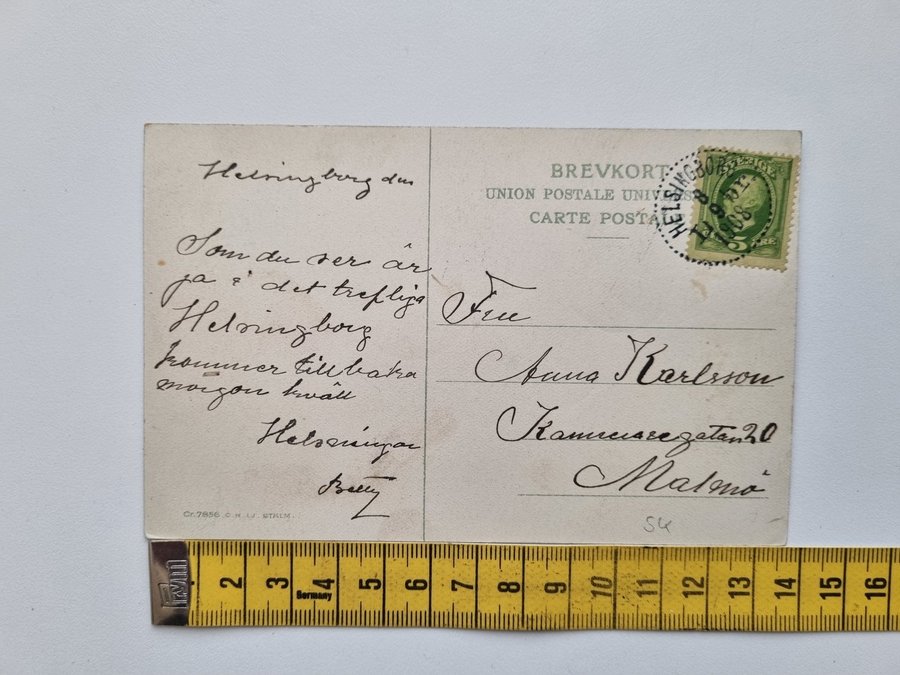 Helsingborg den
Som du ser är
ja i det trefliga
Helsingborg
kommer tillbaka
morgon kväll
Helsningar
Betty
Cr. 7856
BREVKORT
UNION POSTALE UNIVERSE
CARTE POSTAL
HELSINGBOR
1908
5 ÖRE
Fru
Anna Karlsson
20
Malmö
SK
2 3 4 5 6 7 8 9 10 11 12 13 14 15 16
Germany